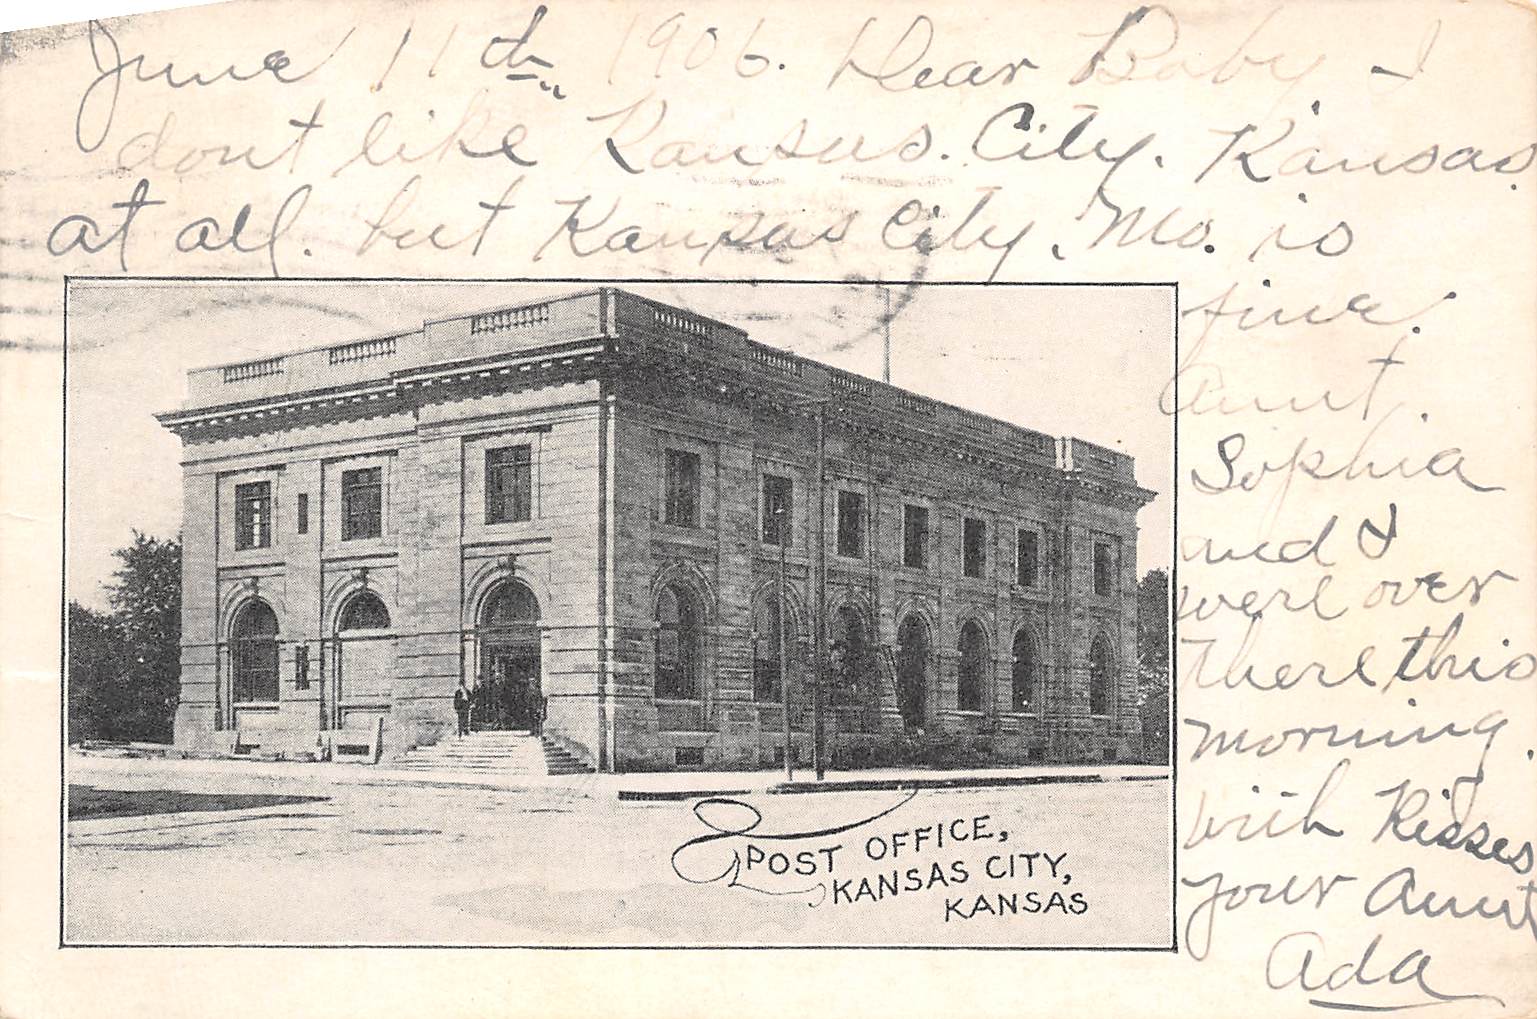 June 11th 1906. Dear Baby I
dont like Kansas. City. Kansas.
at all. but Kansas City, Mo. is
fine.
Aunt.
Sophia
and I
were over
there this
morning.
with Kisses
your Aunt
Ada
POST OFFICE,
KANSAS CITY,
KANSAS